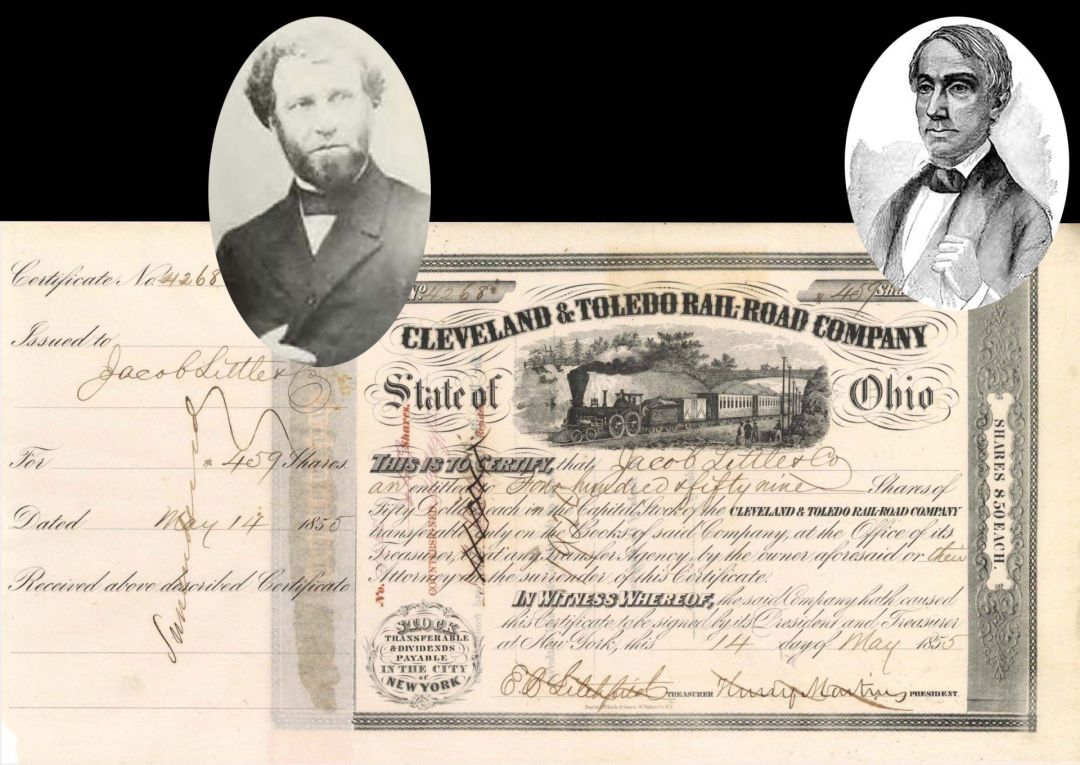 Certificate No. 4268
Issued to
Jacob Little & Co
For 459 Shares
Dated May 14 1855
Received above described Certificate
Surrendered
No. 4268
459 SHA
CLEVELAND & TOLEDO RAIL-ROAD COMPANY
State of Ohio
THIS IS TO CERTIFY, that Jacob Little & Co
an entitled to Four hundred & fifty nine Shares of
Fifty Dollars each in the Capital Stock of the CLEVELAND & TOLEDO RAIL-ROAD COMPANY
transferable only on the Books of said Company, at the Office of its
Treasurer, or at any Transfer Agency, by the owner aforesaid or their
Attorney on the surrender of this Certificate.
IN WITNESS WHEREOF, the said Company hath caused
this Certificate to be signed by its President and Treasurer
at New York, this 14 day of May 1855
TREASURER
PRESIDENT.
STOCK
TRANSFERABLE
& DIVIDENDS
PAYABLE
IN THE CITY
of
NEW YORK
No.
Shares.
COUNTERSIGNED
SHARES $50 EACH